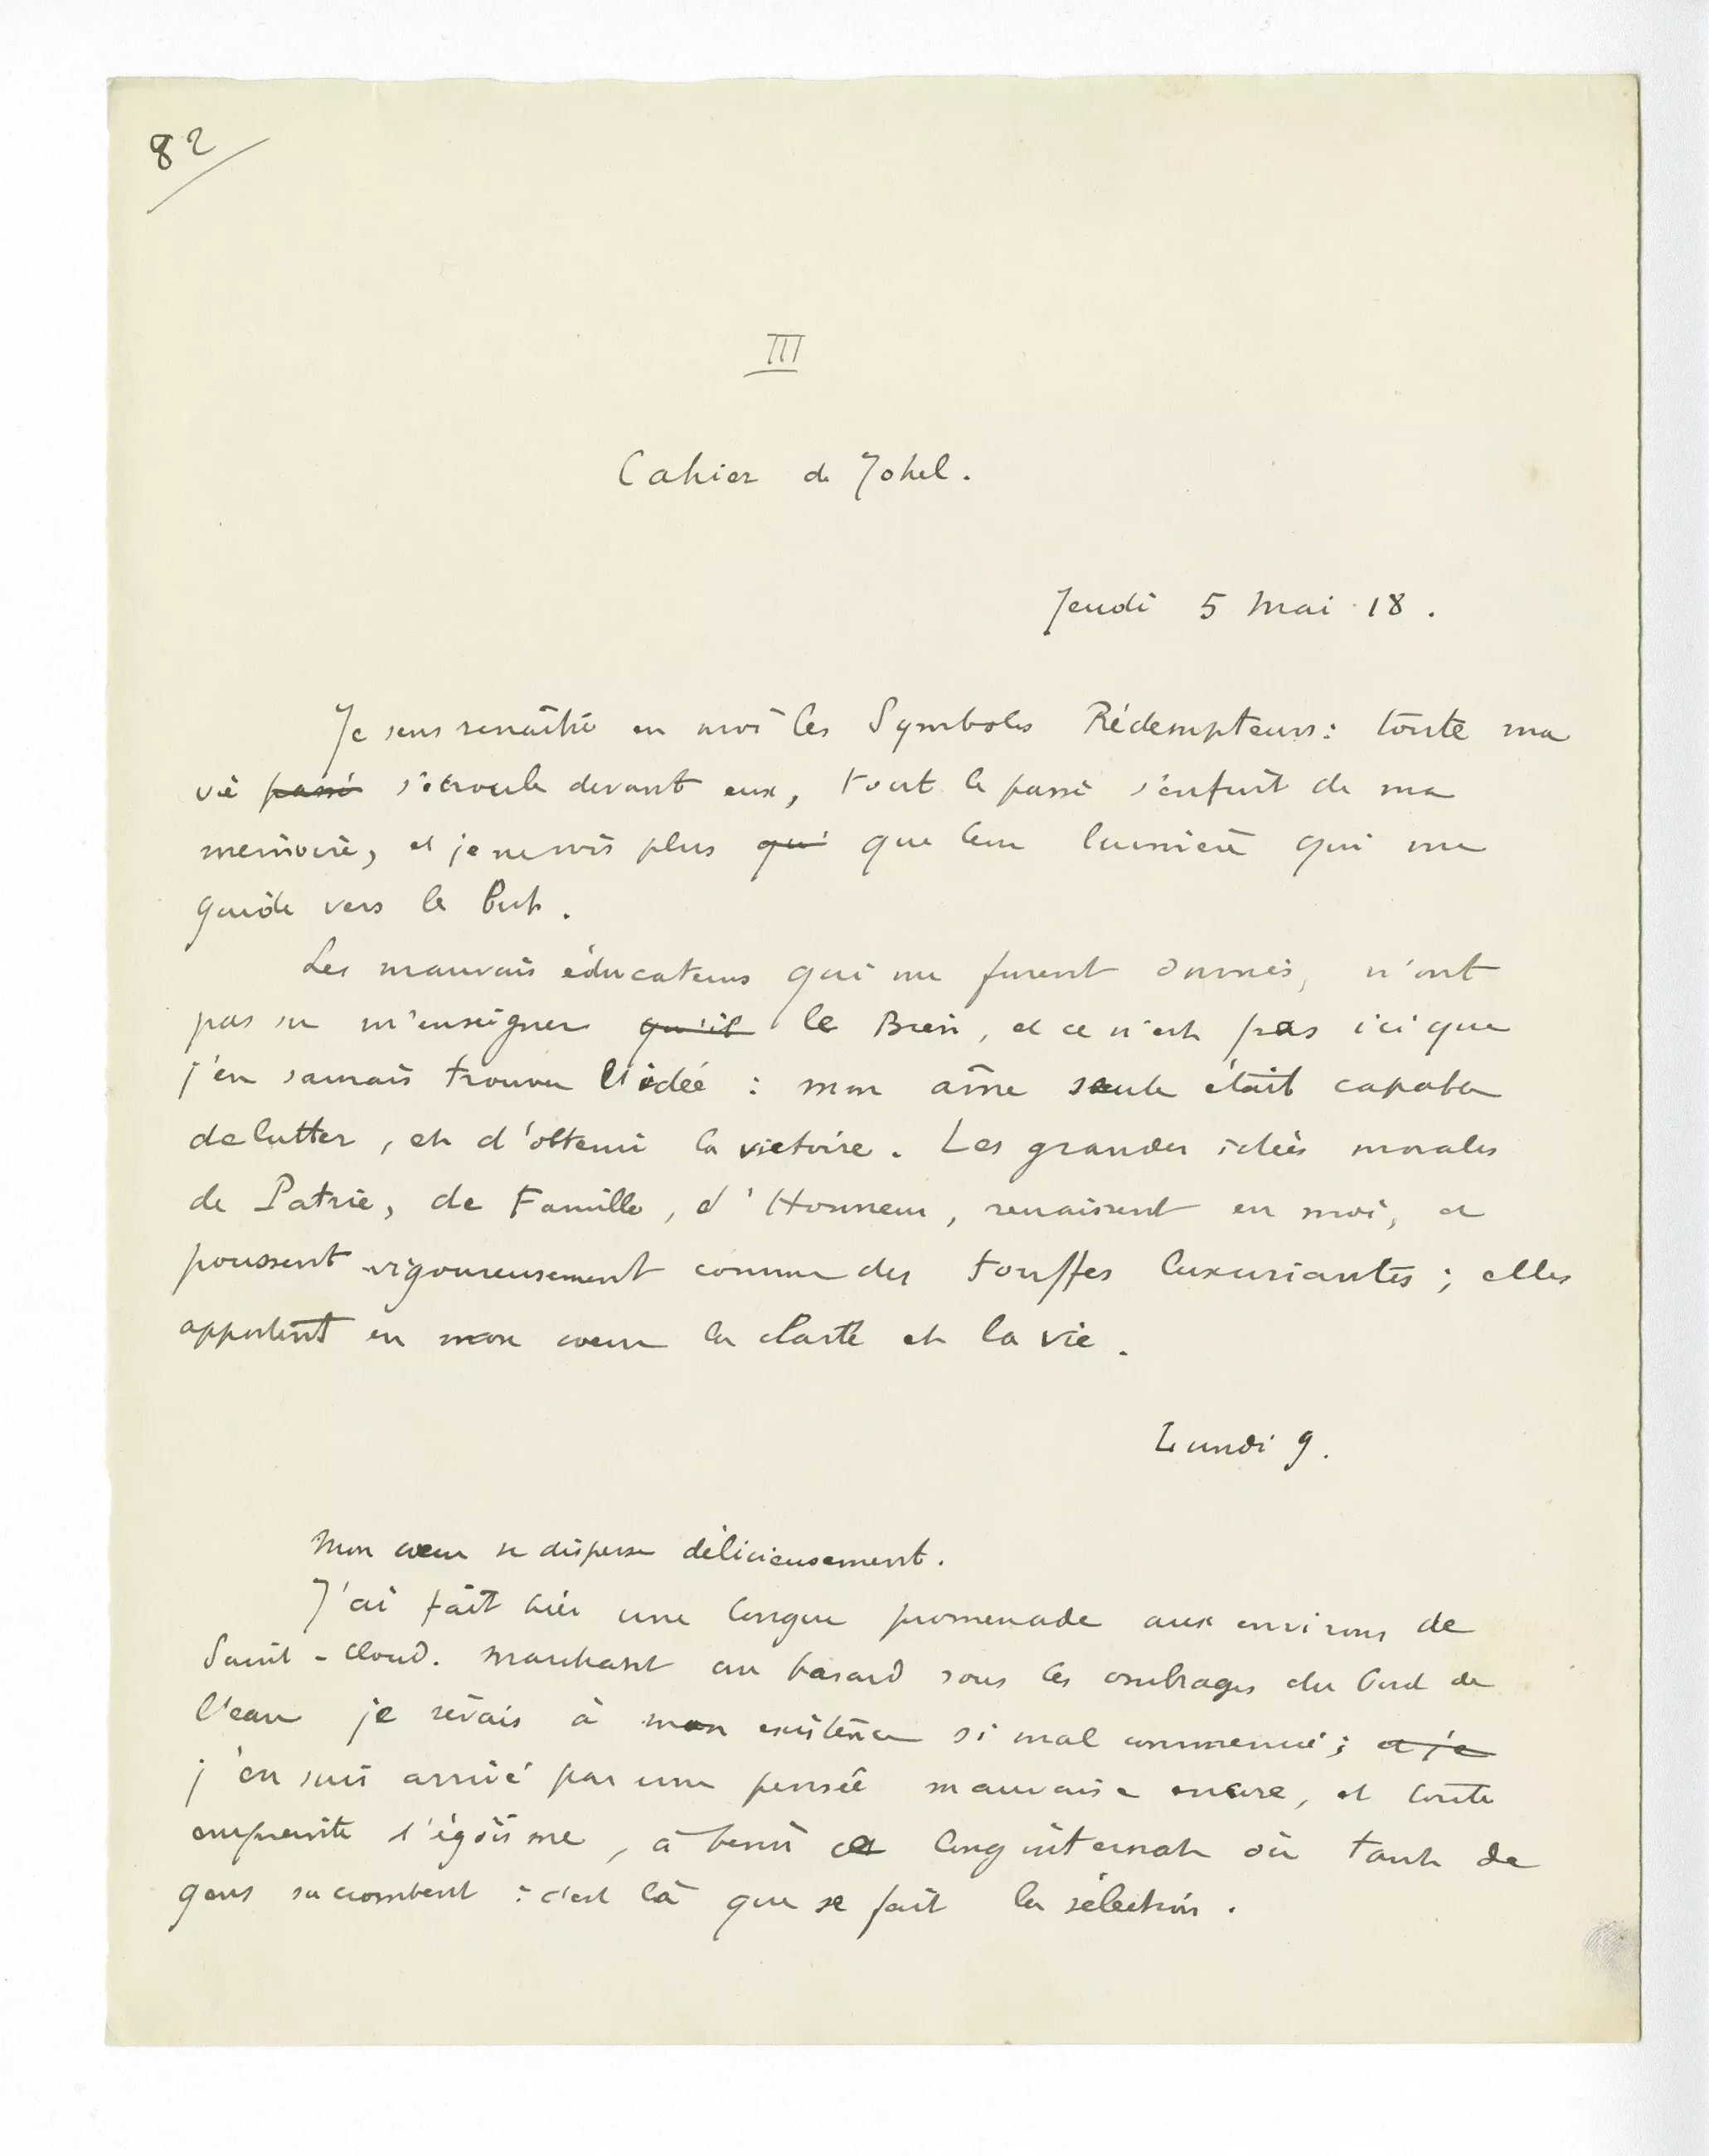 82
III
Cahier de Johel.
Jeudi 5 Mai 18.
Je sens renaître en moi les Symboles Rédempteurs : toute ma
vie passée s'écroule devant eux, tout le passé s'enfuit de ma
mémoire, et je ne vois plus qui que leur lumière qui me
guide vers le but.
Les mauvais éducateurs qui me furent donnés, n'ont
pas su m'enseigner qu'il le Bien, et ce n'est pas ici que
j'en saurais trouver l'idée : mon âme seule était capable
de lutter, et d'obtenir la victoire. Les grandes idées morales
de Patrie, de Famille, d'Honneur, renaissent en moi, et
poussent vigoureusement comme des touffes luxuriantes ; elles
apportent en mon cœur la clarté et la vie.
Lundi 9.
Mon cœur se disperse délicieusement.
J'ai fait hier une longue promenade aux environs de
Saint-Cloud. Marchant au hasard sous les ombrages du bord de
l'eau je rêvais à mon existence si mal commencée ; et je
j'en suis arrivé par une pensée mauvaise encore, et toute
empreinte d'égoïsme, à bénir cet long internat où tant de
gens succombent : c'est là que se fait la sélection.